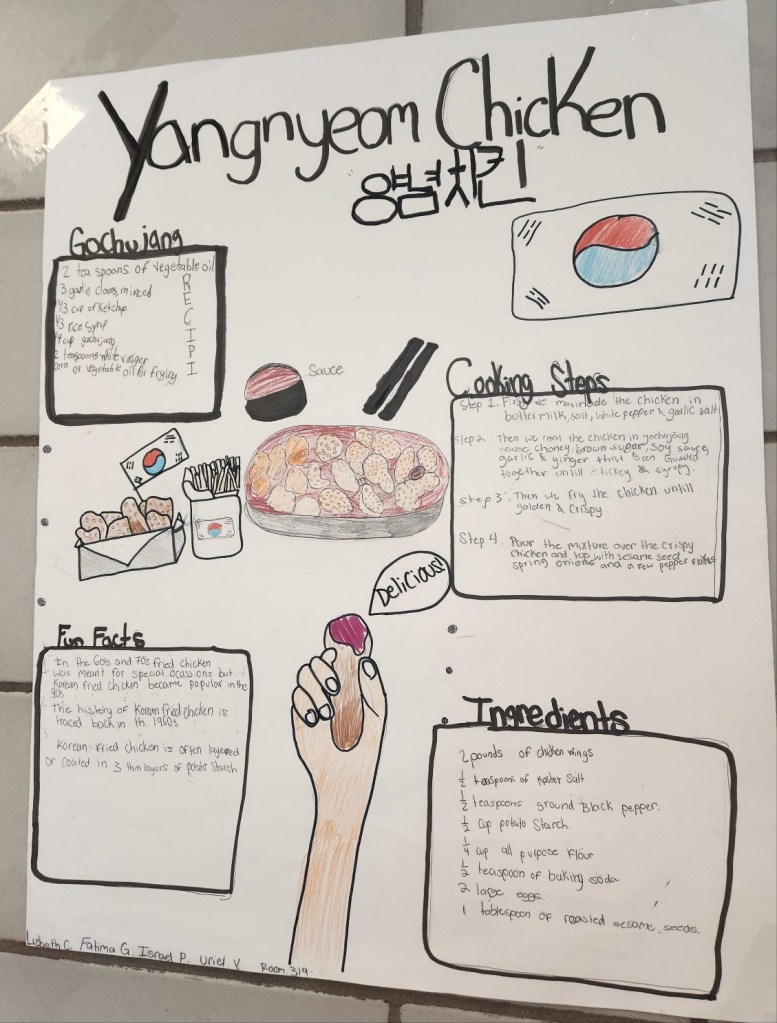 Yangnyeom Chicken
양념치킨
Gochujang
RECIPI
2 teaspoons of vegetable oil
3 garlic cloves, minced
1/3 cup of Ketchup
1/3 rice syrup
1/4 cup gochujang
2 teaspoons white vinger
corn or vegetable oil for frying
Sauce
Cooking Steps
Step 1. First we marinade the chicken in
buttermilk, salt, white pepper & garlic salt
Step 2: Then we coat the chicken in gochujang
sauce, honey, brown sugar, soy sauce,
garlic & ginger that been
together untill stickey & syrupy.
Step 3: Then we fry the chicken untill
golden & crispy
Step 4. Pour the mixture over the crispy
chicken and top with sesame seed,
spring onions and a few pepper flakes
Delicious!
Fun Facts
In the 60s and 70s fried chicken
was meant for special ocassions but
Korean fried chicken became popular in the
90s
The history of Korean fried chicken is
traced back in th 1960s
3.
Korean-fried chicken is often layered
or coated in 3 thin layers of potato starch
Ingredients
2 pounds of chicken wings
1/2 teaspoon of Kosher Salt
1/2 teaspoons ground Black pepper.
1/2 cup potato starch.
1/4 cup all purpose flour
1/2 teaspoon of baking soda
2 large eggs
1 tablespoon of roasted sesame seeds.
Lizbeth C. Fatima G. Israel P. Uriel V. Room 319.